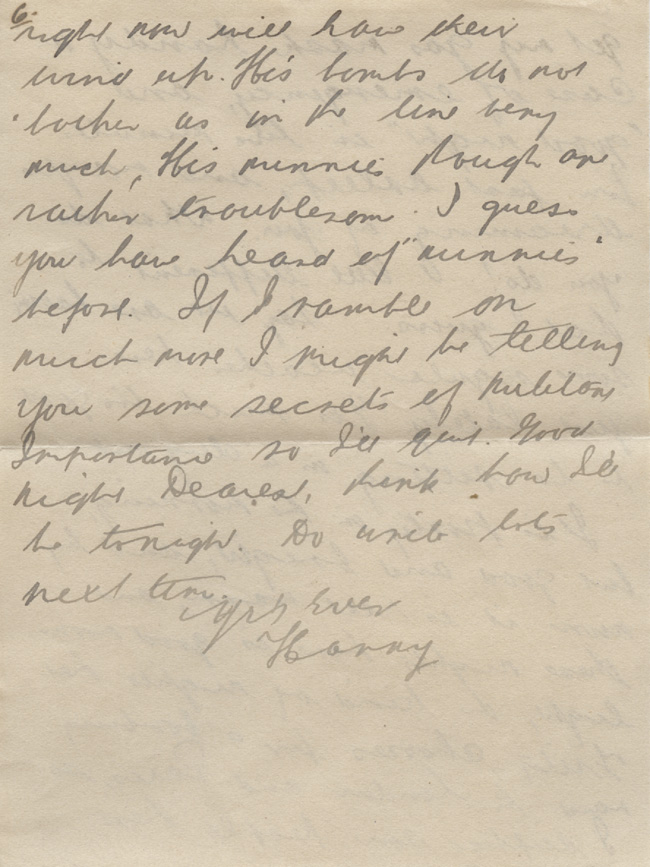 6.
right now will have their
wind up. His bombs do not
bother us in the line very
much, His minnies though are
rather troublesom. I guess
you have heard of "minnies"
before. If I ramble on
much more I might be telling
you some secrets of Military
Importance so I'll quit. Good
night Dearest, think how I'll
be tonight. Do write lots
next time.
Yrs Ever
Harry